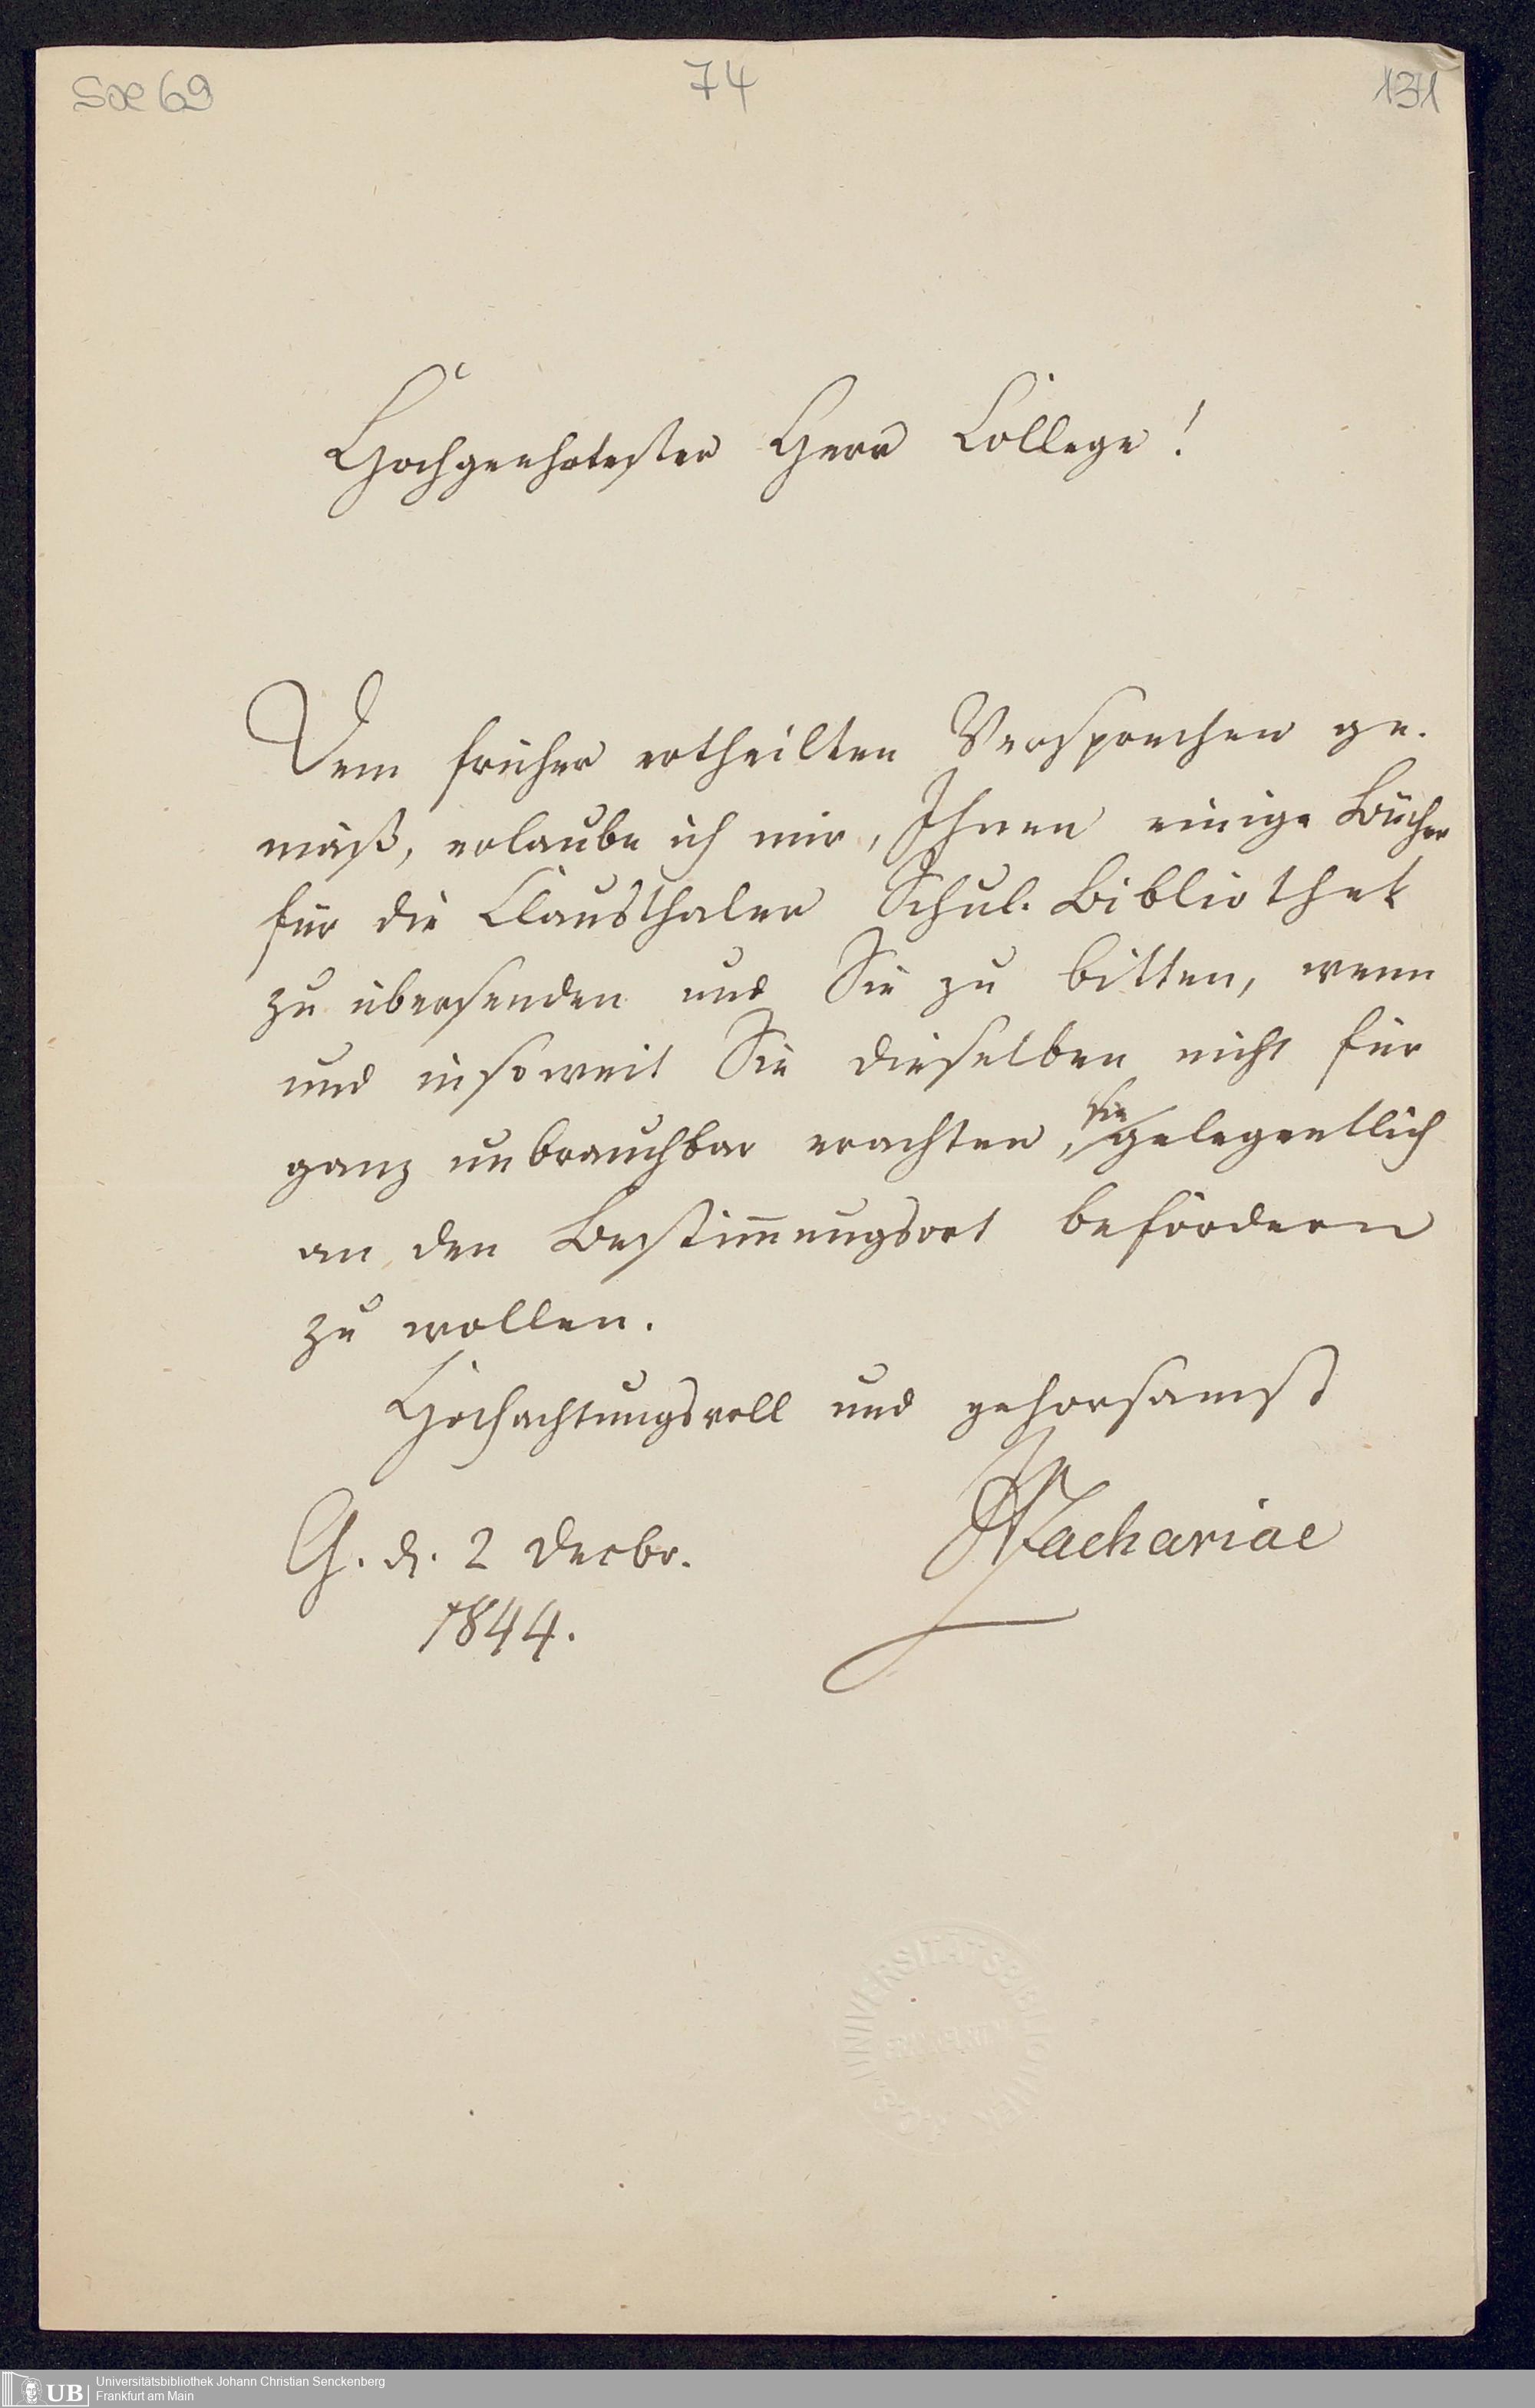 Sae 69
74
131
Hochgeehrtester Herr College!
Dem früher ertheilten Versprechen ge-
mäß, erlaube ich mir, Ihnen einige Bücher
für die Clausthaler Schul-Bibliothek
zu übersenden und Sie zu bitten, wenn
und insoweit Sie dieselben nicht für
ganz unbrauchbar erachten, sie gelegentlich
an den Bestimungsort befördern
zu wollen.
Hochachtungsvoll und gehorsamst
Zachariae
G. d. 2 Decbr.
1844.
UNIVERSITÄTSBIBLIOTHEK
UB
Universitätsbibliothek Johann Christian Senckenberg
Frankfurt am Main